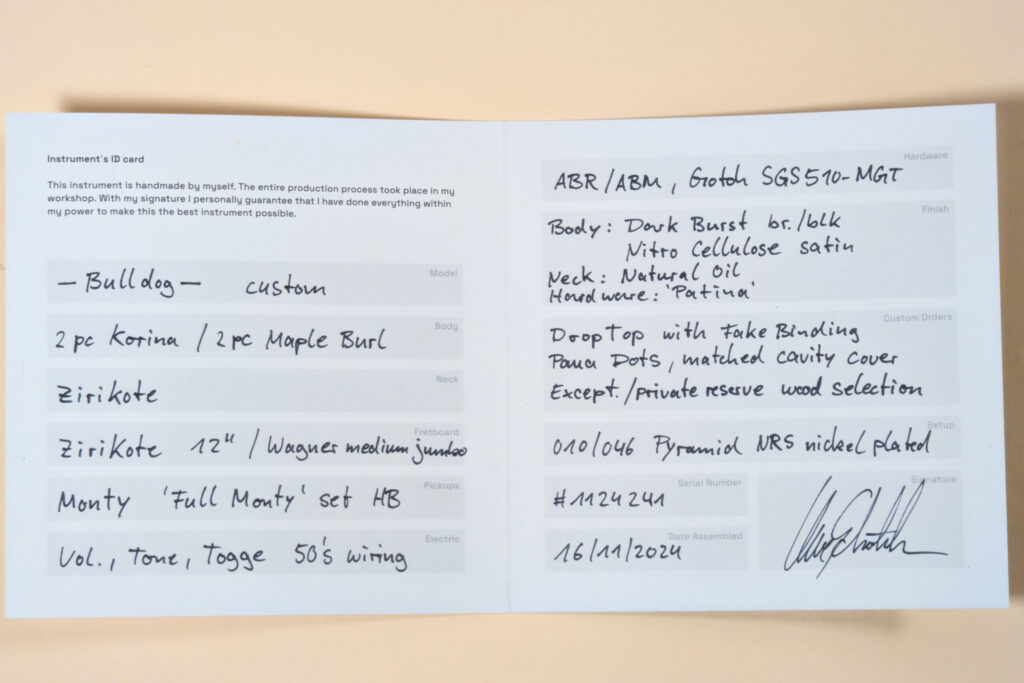 Instrument´s ID card
This instrument is handmade by myself. The entire production process took place in my
workshop. With my signature I personally guarantee that I have done everything within
my power to make this the best instrument possible.
Model
– Bulldog – custom
Body
2 pc Korina / 2 pc Maple Burl
Neck
Zirikote
Fretboard
Zirikote 12" / Wagner medium jumbo
Pickups
Monty 'Full Monty' set HB
Electric
Vol., Tone, Togge 50's wiring
Hardware
ABR/ABM, Grotoh SGS510-MGT
Finish
Body: Dark Burst br./blk
Nitro Cellulose satin
Neck: Natural Oil
Hardware: 'Patina'
Custom Orders
DropTop with Fake Binding
Paua Dots, matched cavity cover
Except./private reserve wood selection
Setup
010/046 Pyramid NRS nickel plated
Serial Number
#1124241
Signature
Date Assembled
16/11/2024